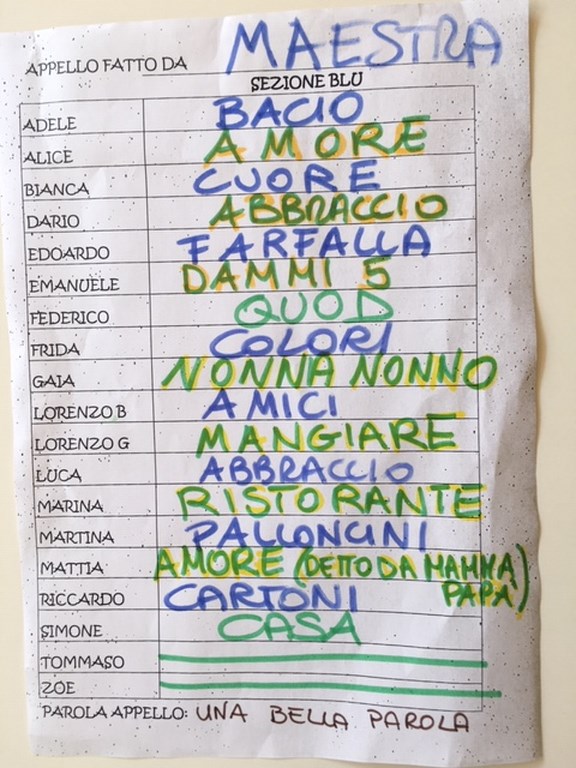 APPELLO FATTO DA MAESTRA
SEZIONE BLU
ADELE BACIO
ALICE AMORE
BIANCA CUORE
DARIO ABBRACCIO
EDOARDO FARFALLA
EMANUELE DAMMI 5
FEDERICO QUOD
FRIDA COLORI
GAIA NONNA NONNO
LORENZO B AMICI
LORENZO G MANGIARE
LUCA ABBRACCIO
MARINA RISTORANTE
MARTINA PALLONCINI
MATTIA AMORE (DETTO DA MAMMA
PAPÀ)
RICCARDO CARTONI
SIMONE CASA
TOMMASO
ZOE
PAROLA APPELLO: UNA BELLA PAROLA